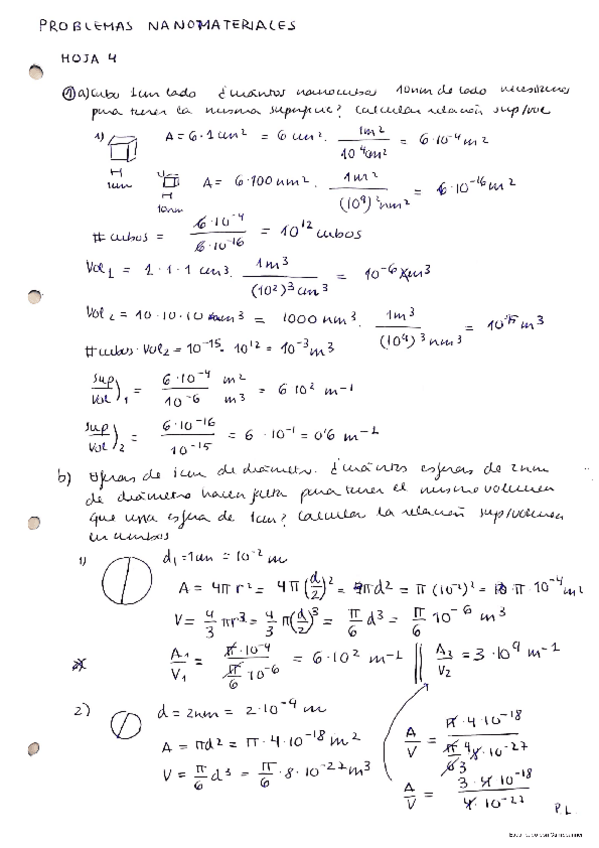 PROBLEMAS NANOMATERIALES
HOJA 4
1 a) Cubo 1cm lado ¿cuántos nanocubos 10nm de lado necesitamos
para tener la misma superficie? Calcular relación sup/vol
1) A = 6·1cm² = 6 cm² · 1m² / 10⁴cm² = 6·10⁻⁴ m²
1cm
A = 6·100 nm² · 1m² / (10⁹)² nm² = 6·10⁻¹⁶ m²
10nm
# cubos = 6·10⁻⁴ / 6·10⁻¹⁶ = 10¹² cubos
Vol₁ = 1·1·1 cm³ · 1m³ / (10²)³ cm³ = 10⁻⁶ m³
Vol₂ = 10·10·10 nm³ = 1000 nm³ · 1m³ / (10⁹)³ nm³ = m³
# cubos · Vol₂ = 10⁻¹⁵ · 10¹² = 10⁻³ m³
sup/vol)₁ = 6·10⁻⁴ / 10⁻⁶ m² / m³ = 6 10² m⁻¹
sup/vol)₂ = 6·10⁻¹⁶ / 10⁻¹⁵ = 6 · 10⁻¹ = 0'6 m⁻¹
b) Esferas de 1cm de diámetro. ¿Cuántas esferas de 2nm
de diámetro hacen falta para tener el mismo volumen
que una esfera de 1cm? Calcular la relación sup/volumen
en ambos
1) d₁ = 1cm = 10⁻² m
A = 4πr² = 4π(d/2)² = πd² = π(10⁻²)² = π·10⁻⁴ m²
V = 4/3 πr³ = 4/3 π(d/2)³ = π/6 d³ = π/6 10⁻⁶ m³
A₁/V₁ = π·10⁻⁴ / π/6 10⁻⁶ = 6·10² m⁻¹ || A₂/V₂ = 3·10⁹ m⁻¹
2) d = 2nm = 2·10⁻⁹ m
A = πd² = π·4·10⁻¹⁸ m²
V = π/6 d³ = π/6 · 8·10⁻²⁷ m³
A/V = π·4·10⁻¹⁸ / π/6 8·10⁻²⁷
A/V = 3·4·10⁻¹⁸ / 4·10⁻²⁷
P.L.